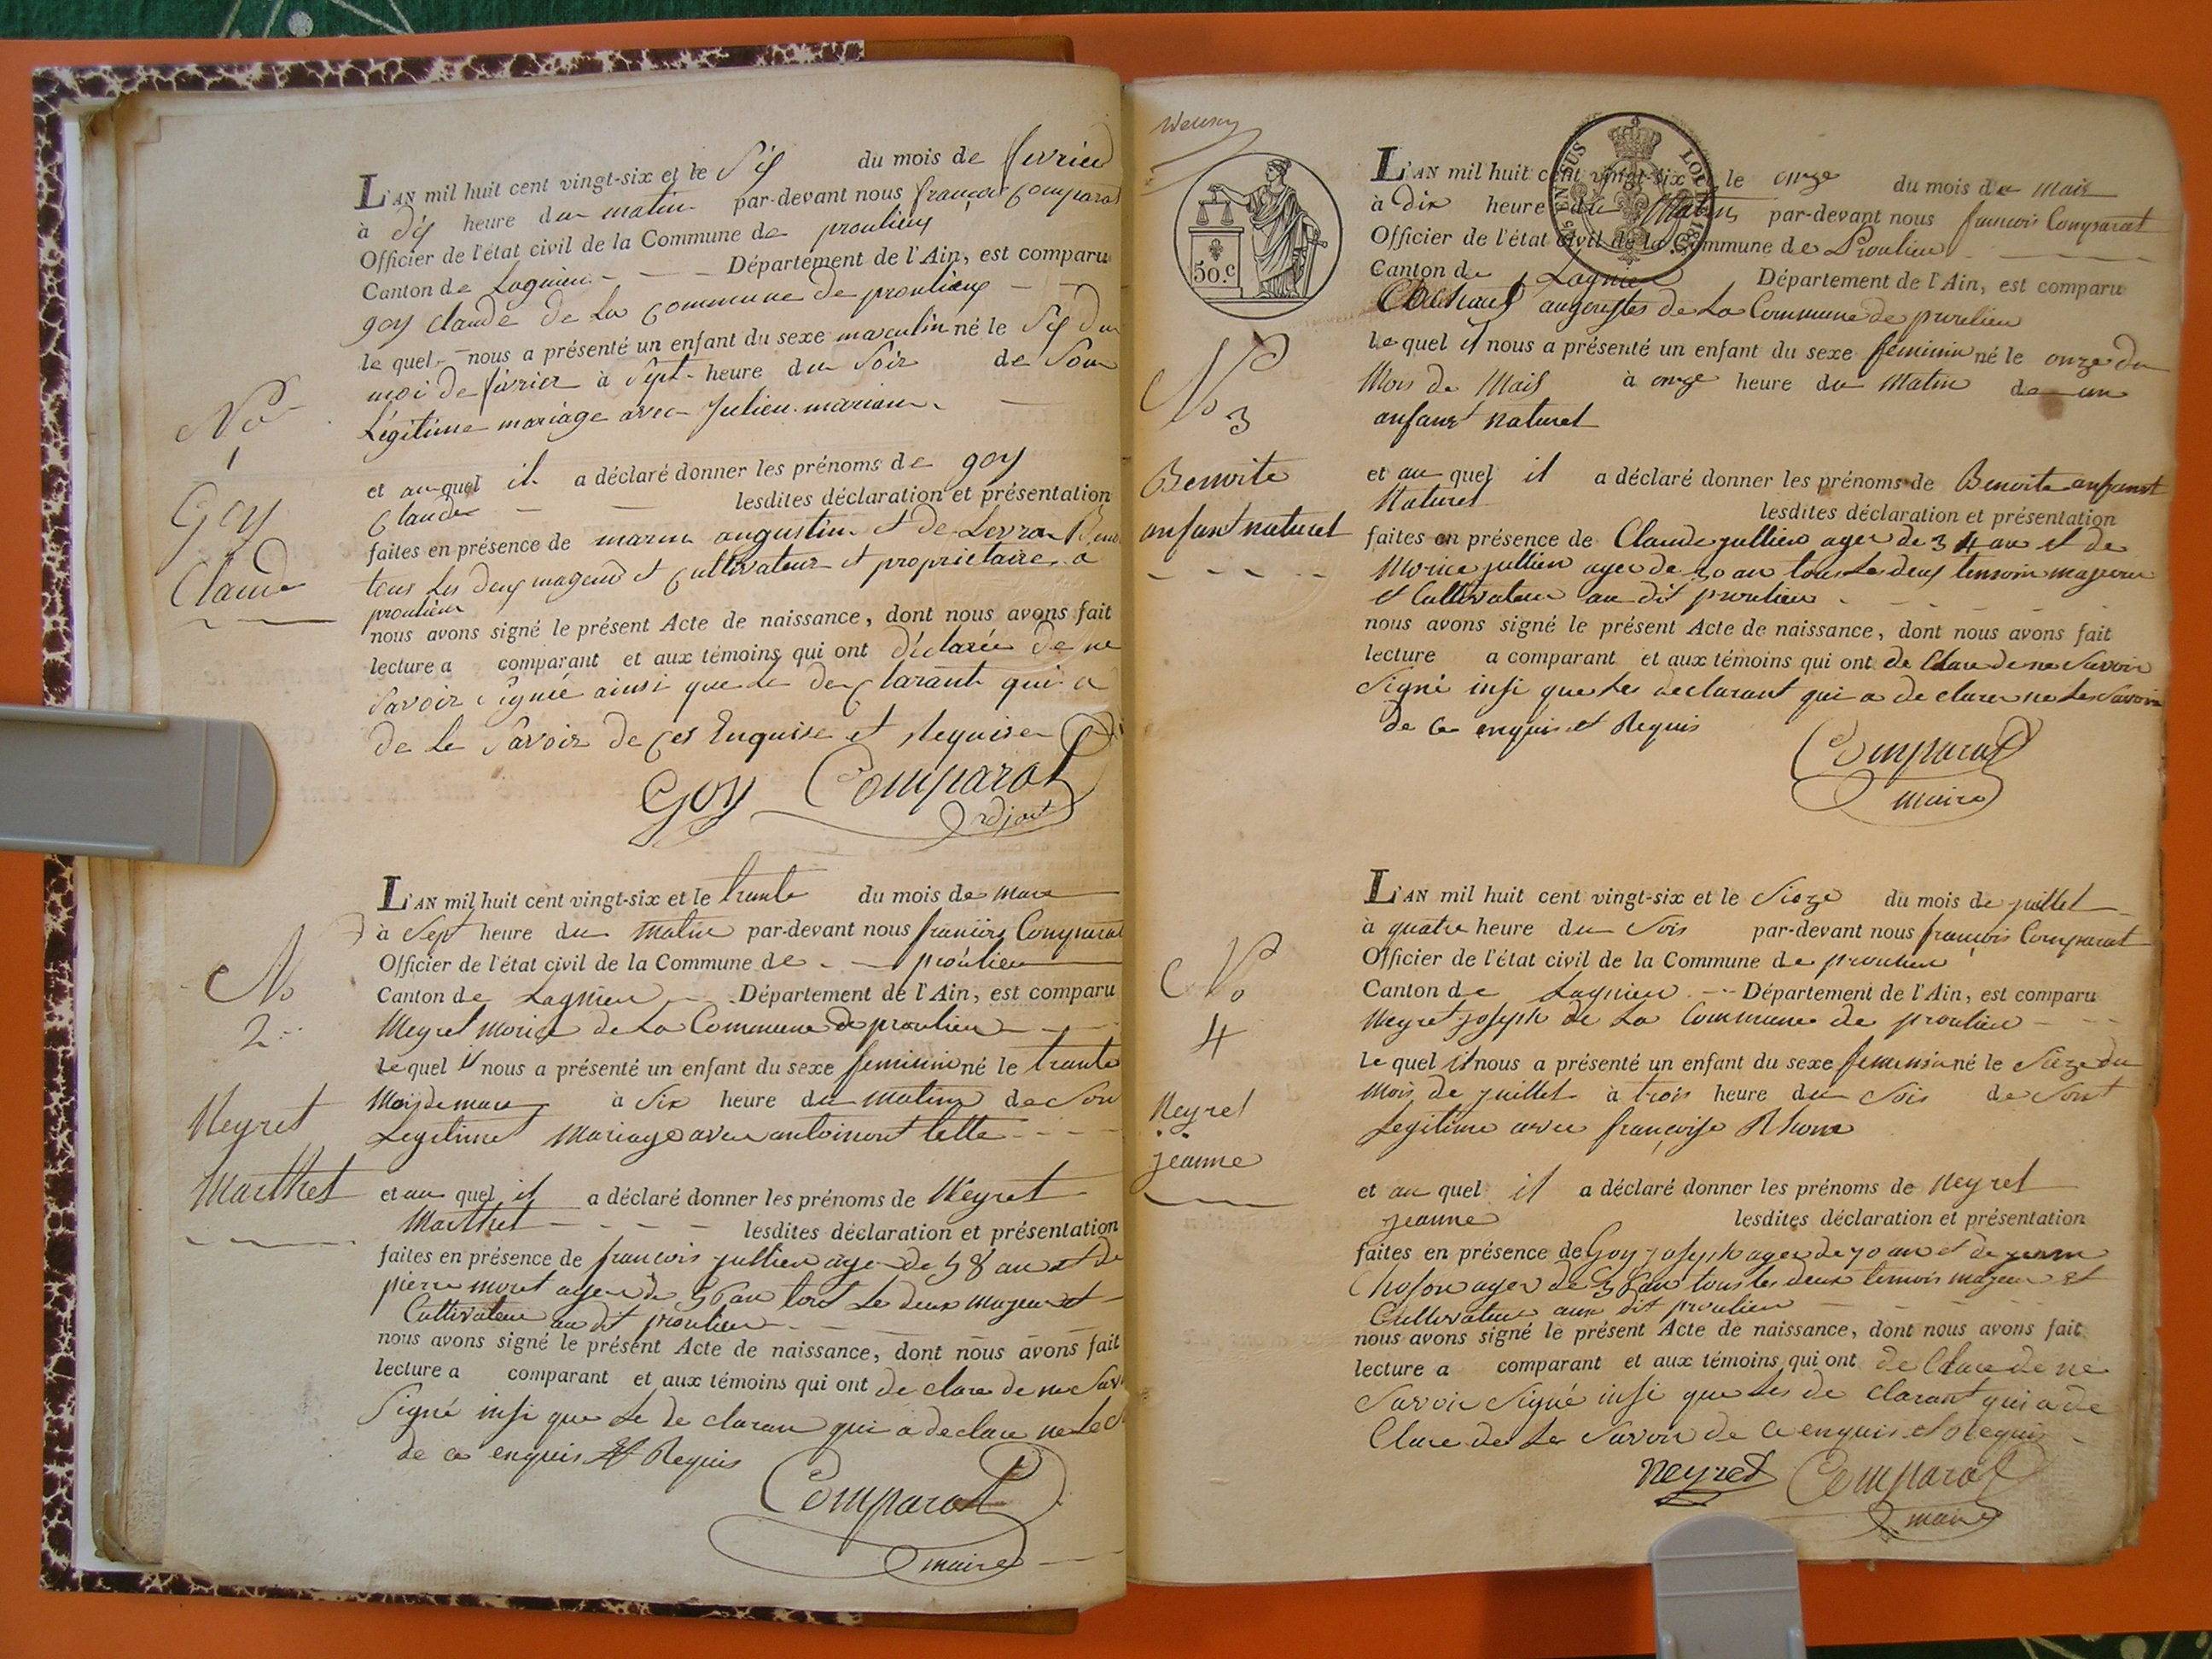 L'AN mil huit cent vingt-six et le Six du mois de fevrier
à dix heure du matin par-devant nous françois Comparat
Officier de l'état civil de la Commune de proulieux
Canton de Lagnieu Département de l'Ain, est comparu
goy claude de La Commune de proulieux
le quel nous a présenté un enfant du sexe masculin né le Six du
moi de fevrier à Sept heure du Soir de Son
Légitime mariage avec Julien mariane
No
1
Goy
Claude
et au quel il a déclaré donner les prénoms de goy
Claude lesdites déclaration et présentation
faites en présence de marin augustin et de Levrat
tous Les deux mageur et Cultivateur et proprietaire a
proulieu
nous avons signé le présent Acte de naissance, dont nous avons fait
lecture a comparant et aux témoins qui ont déclarée de ne
Savoir Signié ainsi que Le declarant qui a
de Le Savoir de ces Enquise et Requise
Goy Comparat
adjoint
L'AN mil huit cent vingt-six et le trante du mois de mars
à Sept heure du Matin par-devant nous francois Comparat
Officier de l'état civil de la Commune de proulieu
Canton de Lagnieu Département de l'Ain, est comparu
Neyret Morice de La Commune de proulieu
le quel il nous a présenté un enfant du sexe feminin né le trante
Mois de mars à Six heure du Matin de Son
Legitimet Mariage avec antoinont tette
No
2
Neyret
Marthet
et au quel il a déclaré donner les prénoms de Neyret
Marthet lesdites déclaration et présentation
faites en présence de francois jullien ager de 58 an et de
pierre moret ager de 56 an tout Le deux Majeur et
Cultivateur au dit proulieu
nous avons signé le présent Acte de naissance, dont nous avons fait
lecture a comparant et aux témoins qui ont de clare de ne Sav
Signé insi que Le de claran qui a declare ne Le
de ce enquis Et Requis
Comparat
maire
50.c
L'AN mil huit cent vingt-six et le onze du mois de Mais
à dix heure du Matin par-devant nous francois Comparat
Officier de l'état civil de la Commune de Proulieu
Canton de Lagnieu Département de l'Ain, est comparu
augoustes de La Commune de proulieu
Le quel il nous a présenté un enfant du sexe feminin né le onze du
Mois de Mais à onze heure du Matin de un
anfant Naturet
No
3
Benoite
anfant naturet
et au quel il a déclaré donner les prénoms de Benoite anfant
Naturet lesdites déclaration et présentation
faites en présence de Claude jullien ager de 34 an et de
Morice jullien ager de 50 an tous Les deux temoin majeur
et Cultivateur au dit proulieu
nous avons signé le présent Acte de naissance, dont nous avons fait
lecture a comparant et aux témoins qui ont de Clare de ne Savoir
Signé insi que Les declarant qui a de clarer ne Le Savoir
de ce enquis et Requis
Comparat
maire
L'AN mil huit cent vingt-six et le Sieze du mois de juillet
à quatre heure du Sois par-devant nous françois Comparat
Officier de l'état civil de la Commune de proulieu
Canton de Lagnieu Département de l'Ain, est comparu
Neyret joseph de La Commune de proulieu
le quel il nous a présenté un enfant du sexe feminin né le Sieze du
Mois de juillet à trois heure du Sois de Sont
Legitime avec françoise Rhone
No
4
Neyret
jeanne
et au quel il a déclaré donner les prénoms de Neyret
jeanne lesdites déclaration et présentation
faites en présence de Goy joseph ager de 70 an et de
ager de 58 an tous les deux temois majeur et
Cultivateur aux dit proulieu
nous avons signé le présent Acte de naissance, dont nous avons fait
lecture a comparant et aux témoins qui ont de Clare de ne
Savoir Signé insi que Les de clarant qui a de
Clare de Le Savoir de ce enquis et Requis
Neyret Comparat
maire